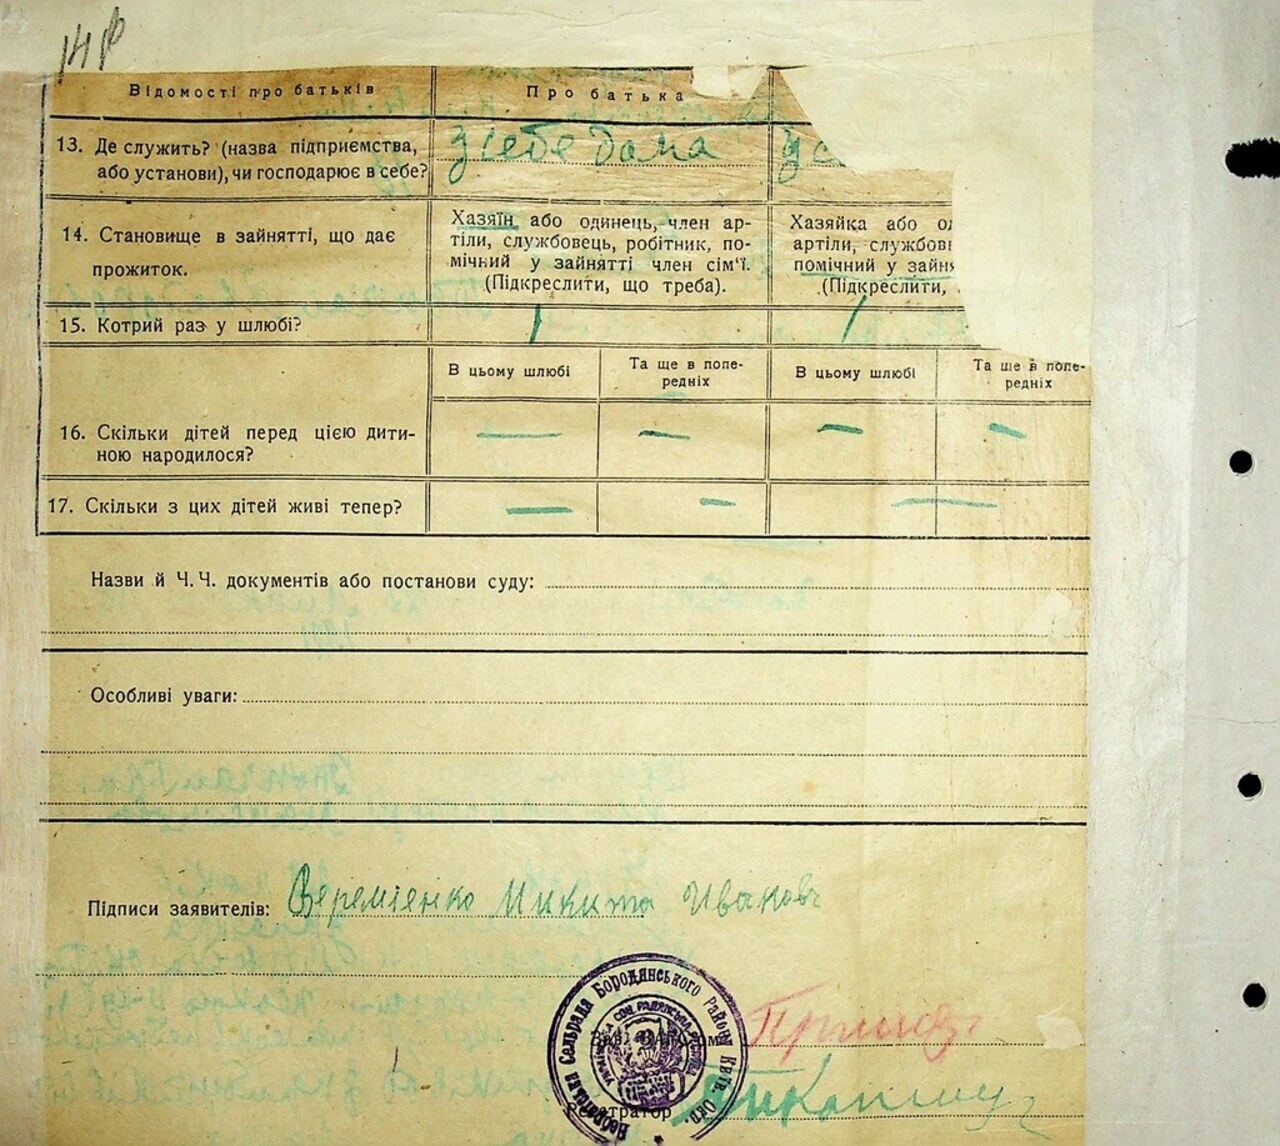 Відомості про батьків
Про батька
13. Де служить? (назва підприємства,
або установи), чи господарює в себе?
дома
14. Становище в зайнятті, що дає
прожиток.
Хазяїн або одинець, член ар-
тілі, службовець, робітник, по-
мічний у зайнятті член сім'ї.
(Підкреслити, що треба).
Хазяйка або
артілі,
помічний у
(Підкреслити,
15. Котрий раз у шлюбі?
1
1
В цьому шлюбі
Та ще в попе-
редніх
В цьому шлюбі
Та ще в попе-
редніх
16. Скільки дітей перед цією дити-
ною народилося?
— — — —
17. Скільки з цих дітей живі тепер?
— — —
Назви й Ч. Ч. документів або постанови суду:
Особливі уваги:
Підписи заявителів: Веремієнко Микита Иванов
Сельрада Бородянського Району Київ. Окр.
Зав. ЗАГС'ом
Реєстратор